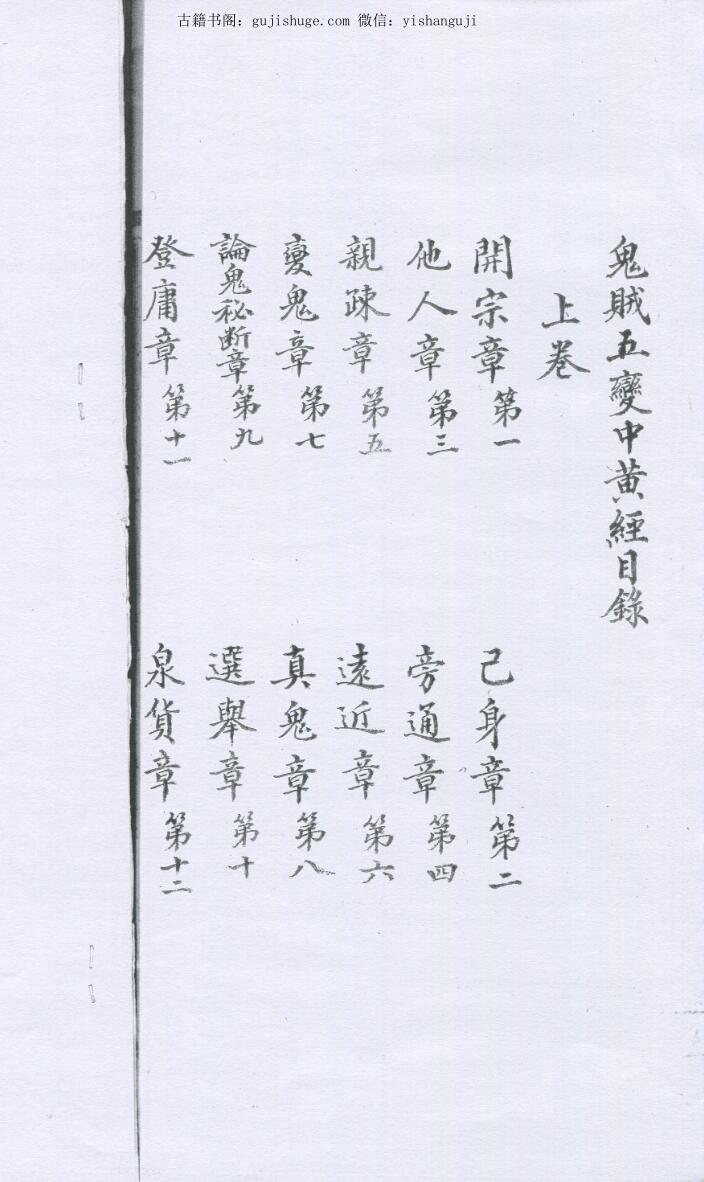 古籍书阁：gujishuge.com 微信：yishanguji
鬼賊五變中黃經目錄
上卷
開宗章第一
己身章第二
他人章第三
旁通章第四
親疎章第五
遠近章第六
變鬼章第七
真鬼章第八
論鬼秘断章第九
選舉章第十
登庸章第十一
泉貨章第十二